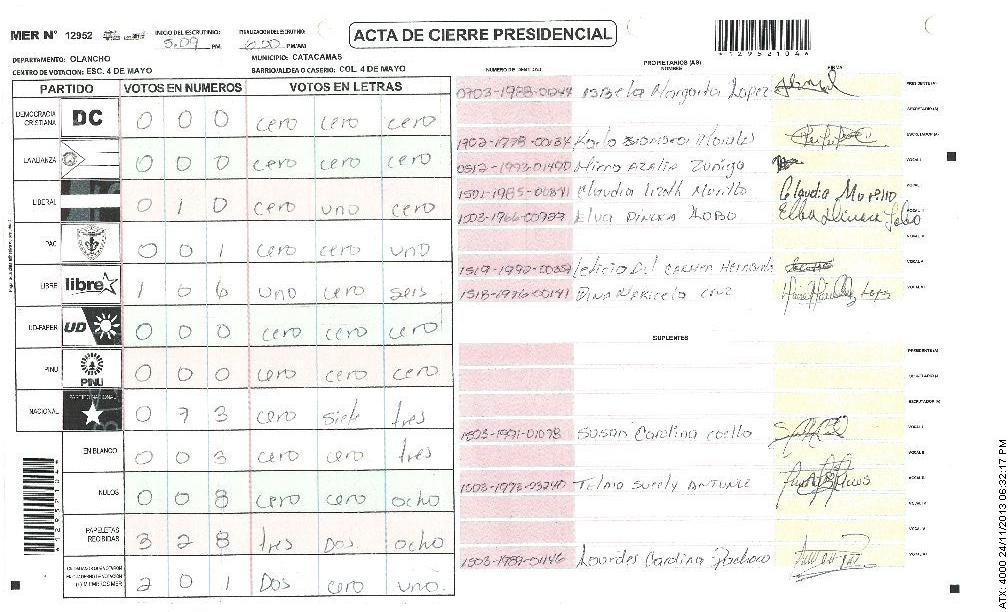 MER N° 12952
INICIO DEL ESCRUTINIO: 5:09 PM
FINALIZACION DEL ESCRUTINIO: 6:00 PM/AM
ACTA DE CIERRE PRESIDENCIAL
12952104
DEPARTAMENTO: OLANCHO
MUNICIPIO: CATACAMAS
CENTRO DE VOTACION: ESC. 4 DE MAYO
BARRIO/ALDEA O CASERIO: COL. 4 DE MAYO
PARTIDO VOTOS EN NUMEROS VOTOS EN LETRAS
DEMOCRACIA CRISTIANA DC 0 0 0 cero cero cero
LA ALIANZA 0 0 0 cero cero cero
LIBERAL 0 1 0 cero uno cero
PAC 0 0 1 cero cero uno
LIBRE libre 1 0 6 uno cero seis
UD-FAPER UD 0 0 0 cero cero cero
PINU PINU 0 0 0 cero cero cero
NACIONAL PARTIDO NACIONAL 0 7 3 cero siete tres
EN BLANCO 0 0 3 cero cero tres
NULOS 0 0 8 cero cero ocho
PAPELETAS RECIBIDAS 3 2 8 tres Dos ocho
2 0 1 Dos cero uno.
PROPIETARIOS (AS)
NUMERO DE IDENTIDAD NOMBRE FIRMA
0703-1988-00 Margarita Lopez PRESIDENTE(A)
SECRETARIO(A)
1902-1978-00134 Karla ESCRUTADOR(A)
0512-1993-01490 Azalia Zuniga VOCAL I
1501-1985-00841 Claudia Lizeth Murillo Claudia Murillo
1503-1966-00 Elva Dinora Lobo
1519-1992-00 Leticia Del Carmen
1518-1976-00141 Dina Maricela Cruz Lopez
SUPLENTES
PRESIDENTE(A)
SECRETARIO(A)
ESCRUTADOR(A)
1503-1991-01078 Susan Carolina Coello VOCAL I
VOCAL II
1503-1973-03240 Telma Suyely Antunez
1503-1989-01146 Lourdes Carolina Pacheco
ATX: 4000 24/11/2013 06:32:17 PM